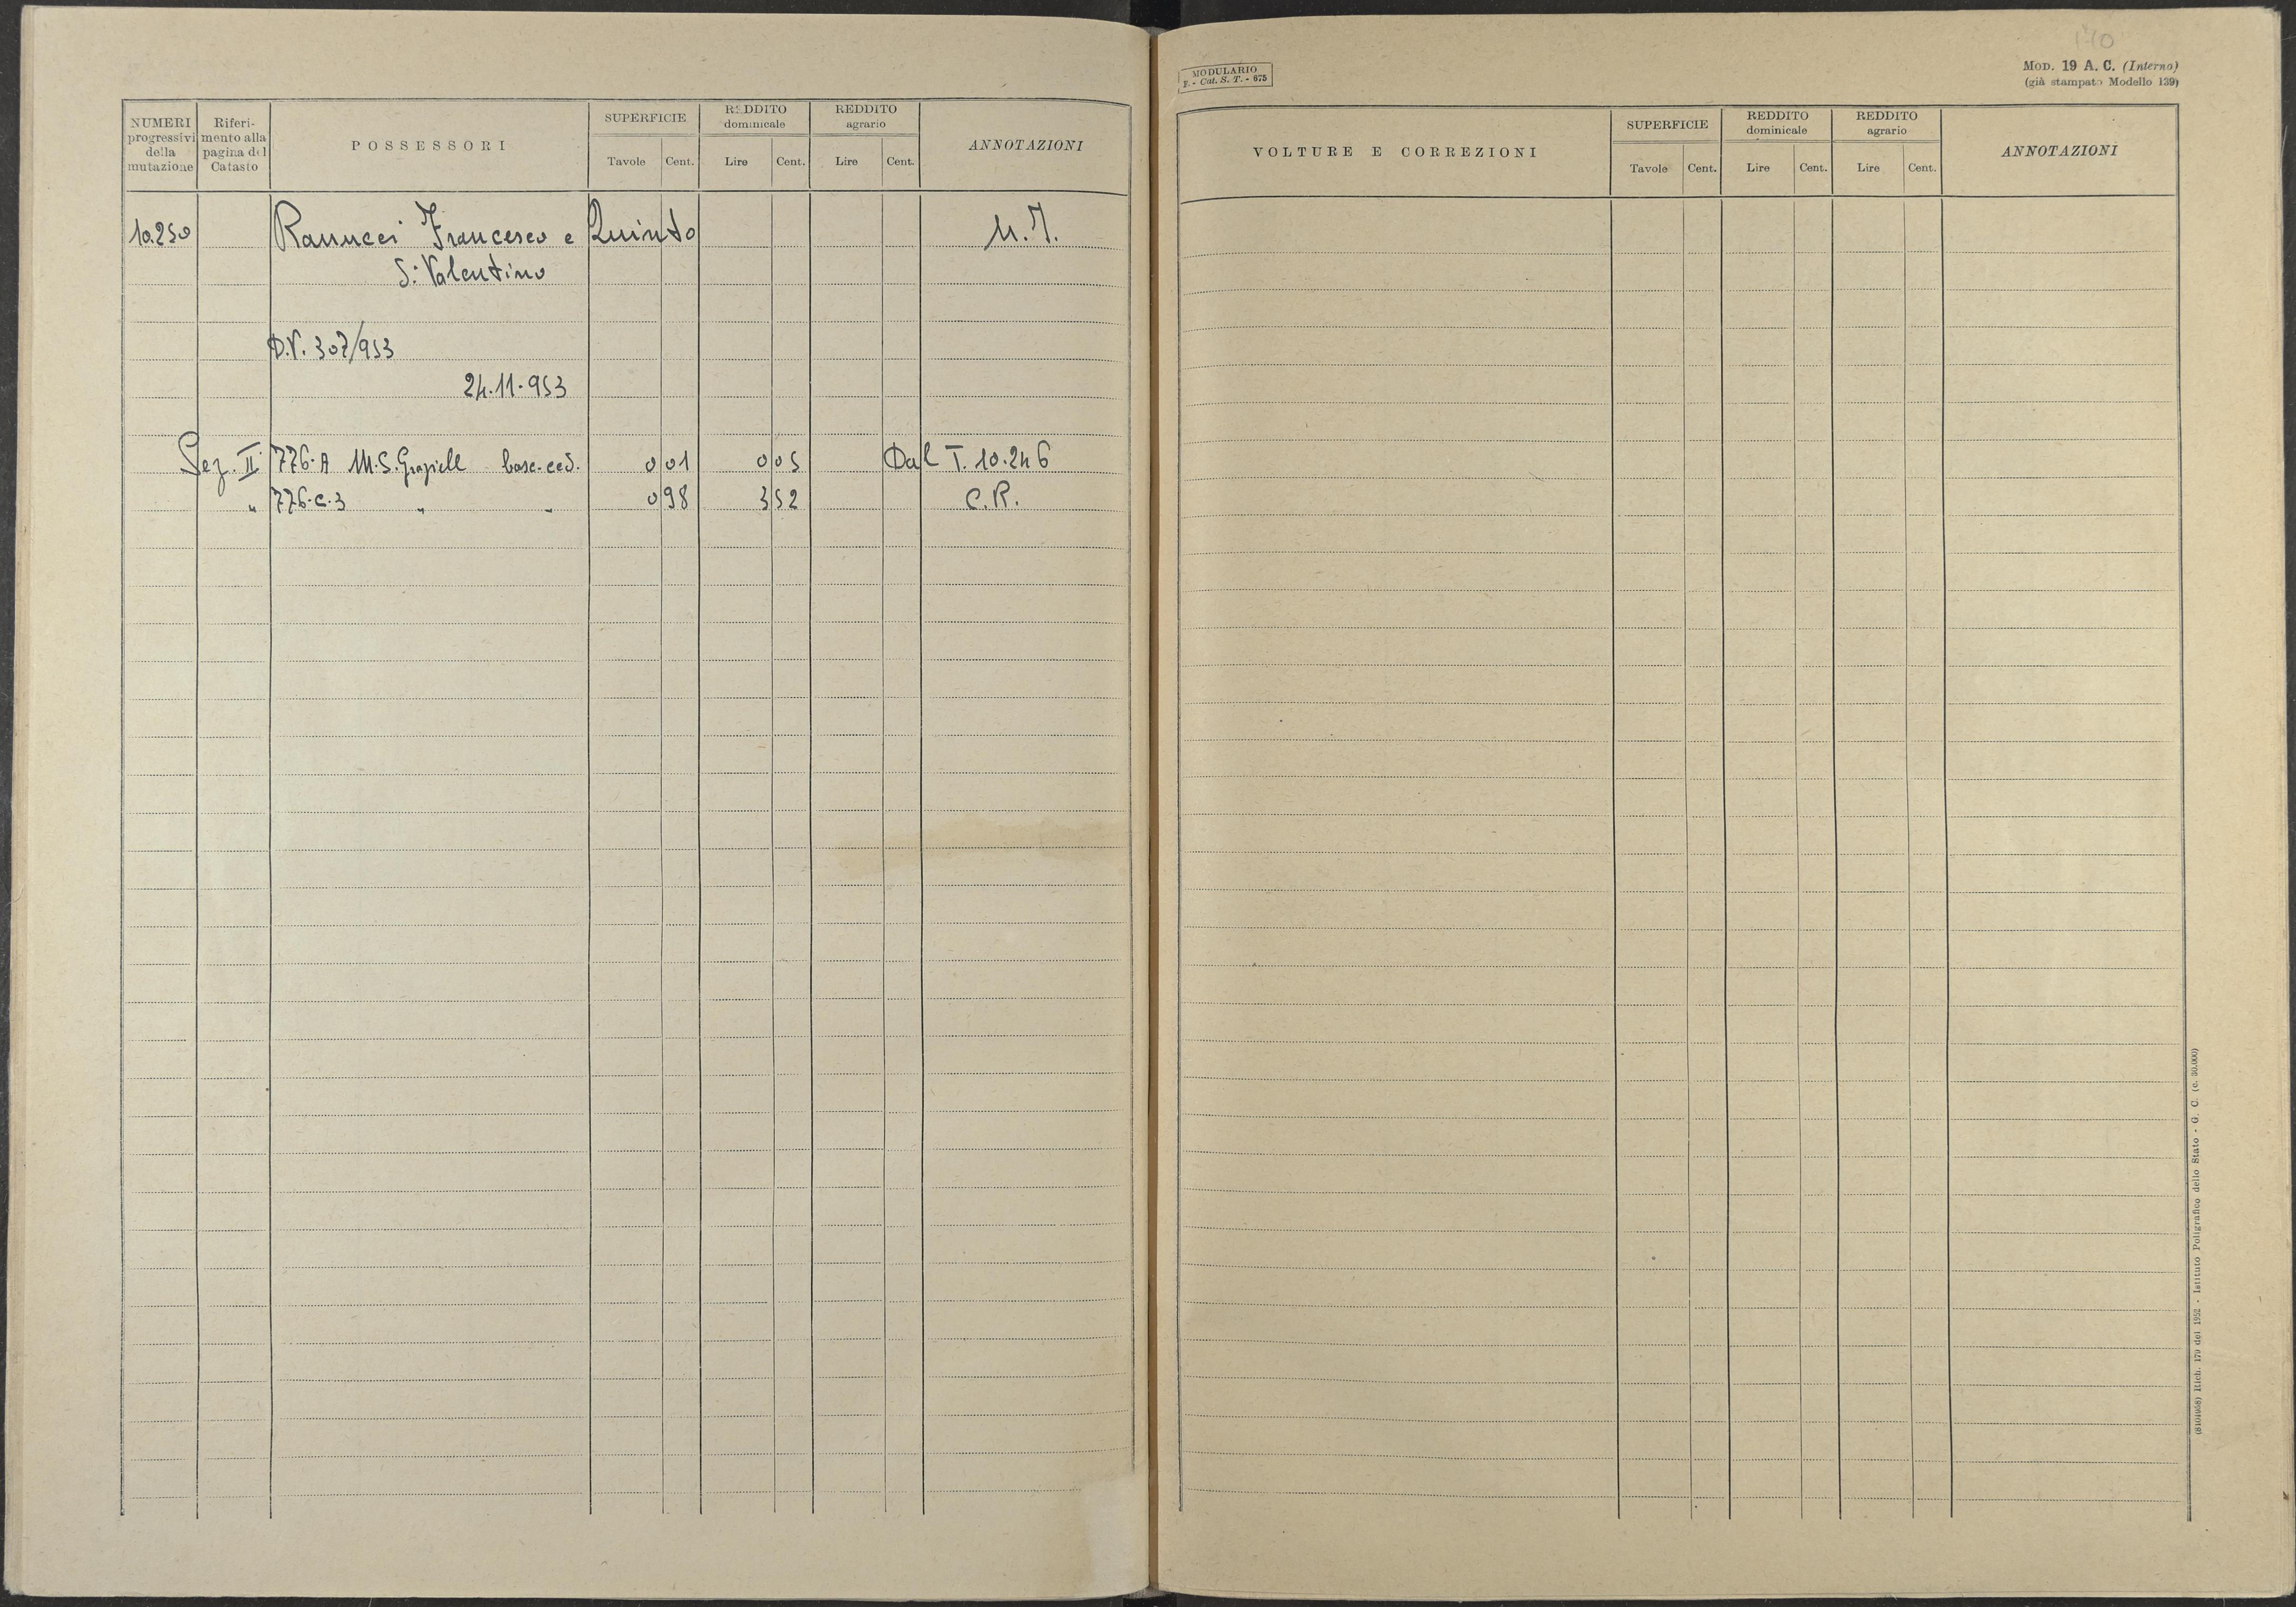 NUMERI progressivi della mutazione | Riferimento alla pagina del Catasto | POSSESSORI | SUPERFICIE Tavole Cent. | REDDITO dominicale Lire Cent. | REDDITO agrario Lire Cent. | ANNOTAZIONI
10.250 Ranucci Francesco e Quinto
S: Valentino
D.V. 307/953
24.11.953
Sez. II 776.A M.S. base. ced. 0 01 0 05 Dal T. 10.246
" 776.C.3 " " 0 98 3 52 C.R.
140
MODULARIO
F. - Cat. S. T. - 675
MOD. 19 A. C. (Interno)
(già stampato Modello 139)
VOLTURE E CORREZIONI | SUPERFICIE Tavole Cent. | REDDITO dominicale Lire Cent. | REDDITO agrario Lire Cent. | ANNOTAZIONI
Rich. 179 del 1952 - Istituto Poligrafico dello Stato - G. C. (c. 30.000)